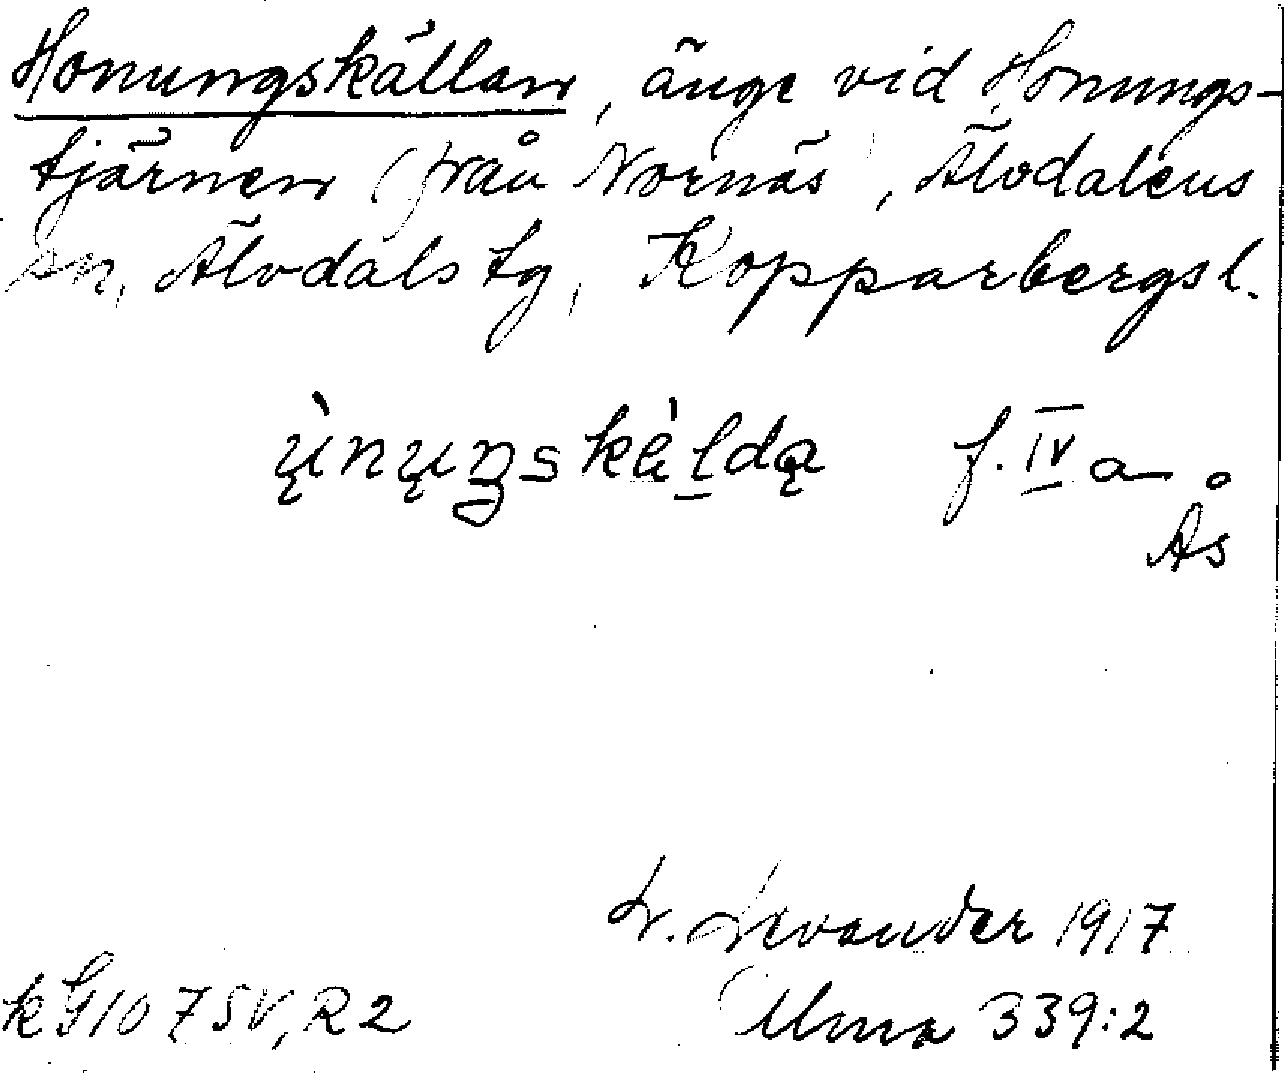 Honungskällan, änge vid Honungs-
tjärnen (från Nornäs), Älvdalens
sn, Älvdals tg, Kopparbergs l.
ų̀nųŋskæ̀ldą f. IV a
Ås
L. Levander 1917
Ulma 339:2
k G 107 SV, R2